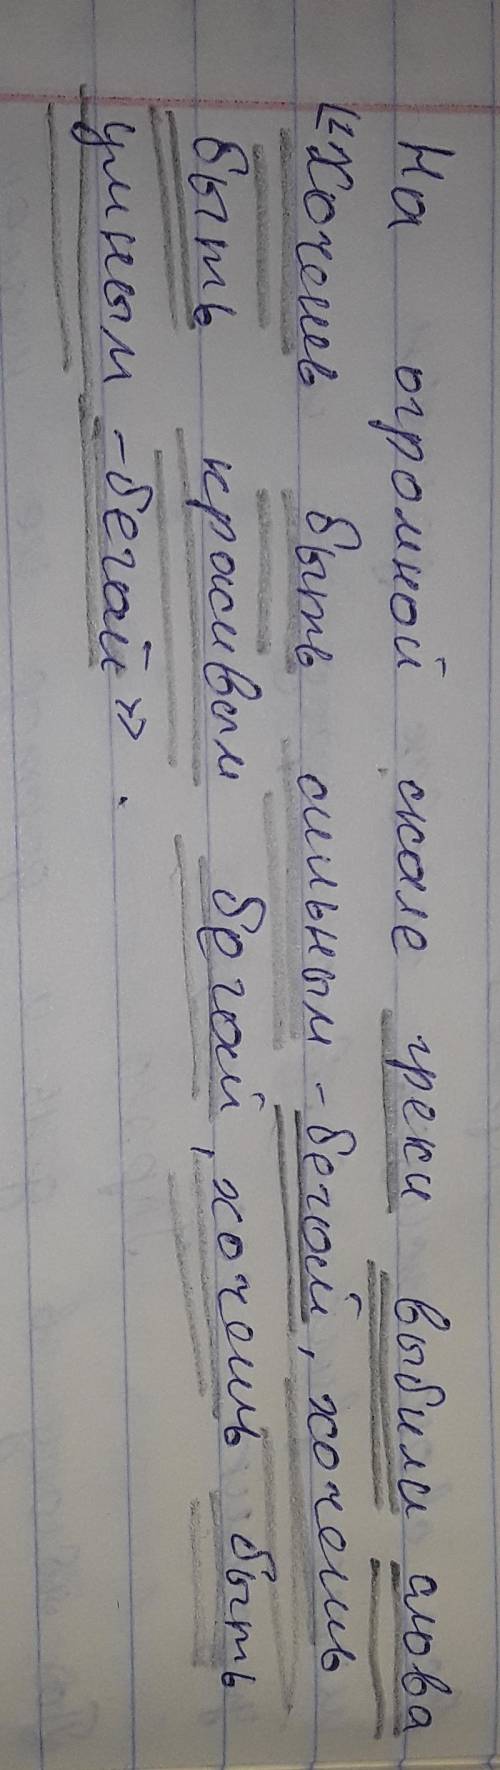 На огромной скале греки выбили слова
«Хочешь быть сильным - бегай, хочешь
быть красивым бегай, хочешь быть
умным - бегай».